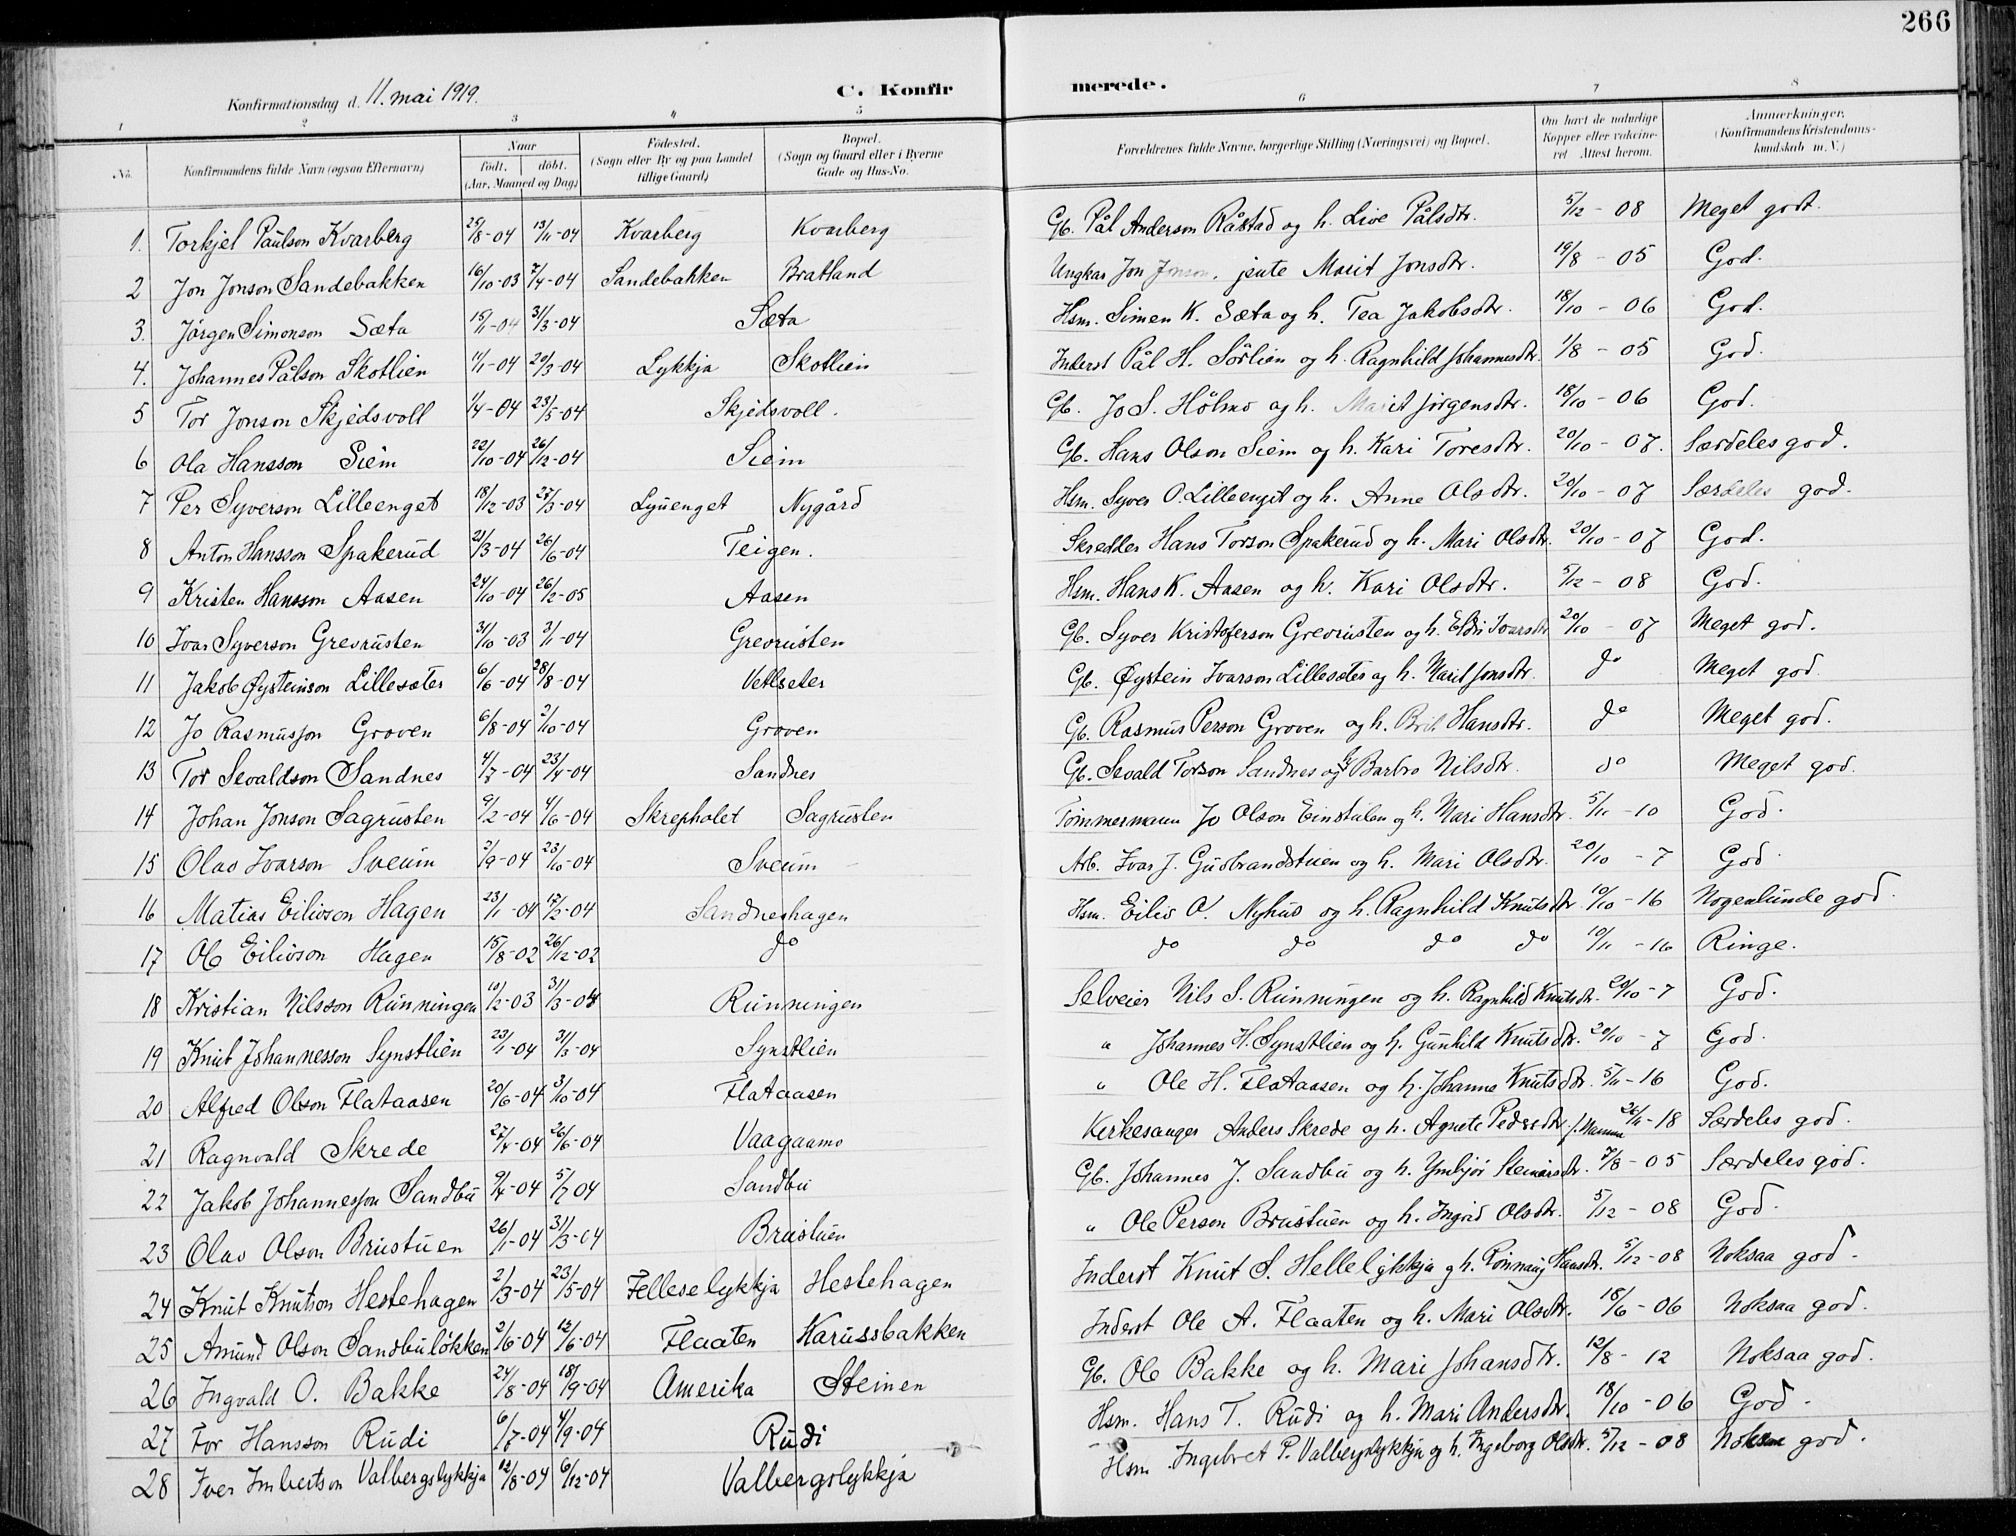 266
Konfirmationsdag d. 11. mai 1919.
C. Konfirmerede.
1 2 3 4 5 6 7 8
No. Konfirmandens fulde Navn (ogsaa Efternavn) Naar født. døbt. (Aar, Maaned og Dag) Fødested. (Sogn eller By og paa Landet tillige Gaard) Bopæl. (Sogn og Gaard eller i Byerne Gade og Hus-No. Forældrenes fulde Navne, borgerlige Stilling (Næringsvei) og Bopæl. Om havt de naturlige Kopper eller vakcineret Attest herom. Anmærkninger. (Konfirmandens Kristendomskundskab m. V.)
1. Torkjel Paulson Kvarberg 25/8-04 13/11-04 Kvarberg Kvarberg Gb. Pål Anderson Råstad og h. Live Pålsdtr. 5/12-08 Meget godt.
2 Jon Jonson Sandebakken 16/10-03 7/4-04 Sandebakken Bratland Ungkar Jon Jonson, jente Marit Jonsdtr. 19/8-05 God.
3. Jörgen Simonson Sæta 15/1-04 31/3-04 Sæta Hsm. Simen K. Sæta og h. Tea Jakobsdtr. 18/10-06 God.
4. Johannes Pålson Skotlien 11/1-04 20/3-04 Lykkja Skotlien Inderst Pål H. Sörlien og h. Ragnhild Johannesdtr. 1/8-05 God.
5 Tor Jonson Skjedsvoll 1/4-04 23/5-04 Skjedsvoll. Gb. Jo S. Holmo og h. Marit Jörgensdtr. 18/10-06 God.
6 Ola Hansson Siem 22/10-04 26/12-04 Siem Gb. Hans Olson Siem og h. Kari Toresdtr. 20/10-07. Særdeles god.
7 Per Syverson Lilleenget 18/12-03 27/3-04 Lyuenget Nygård Hsm. Syver O. Lilleenget og h. Anne Olsdtr. 20/10-07 Særdeles god.
8 Anton Hansson Spakerud 21/3-04 26/6-04 Teigen. Skredder Hans Torson Spakerud og h. Mari Olsdtr. 20/10-07 God.
9 Kristen Hansson Aasen 24/10-04 26/2-05 Aasen Hsm. Hans K. Aasen og h. Kari Olsdtr. 5/12-08 God.
10 Ivar Syverson Grevrusten 31/10-03 3/1-04 Grevrusten Gb. Syver Kristoferson Grevrusten og h. Eldri Ivarsdtr 20/10-07 Meget god.
11 Jakob Øysteinson Lillesæter 6/6-04 28/8-04 Vetlseter Gb. Øystein Ivarson Lillesæter og h. Marit Jonsdtr. do Meget god.
12 Jo Rasmusson Groven 6/8-04 2/10-04 Groven Gb. Rasmus Person Groven og h. Brit Hansdtr. do Meget god.
13 Tor Sevaldson Sandnes 4/3-04 23/4-04 Sandnes Gb. Sevald Torson Sandnes og h. Barbro Nilsdtr. do Meget god.
14 Johan Jonson Sagrusten 9/2-04 4/6-04 Skrepholet Sagrusten Tømmermann Jo Olson Einstulen og h. Mari Hansdtr. 5/11-10 God.
15 Olav Ivarson Sveum 2/9-04 23/10-04 Sveum Arb. Ivar J. Gudbrandstuen og h. Mari Olsdtr. 20/10-7 God.
16 Matias Eilivson Hagen 23/1-04 17/2-04 Sandneshagen Hsm. Eiliv O. Nyhus og h. Ragnhild Knutsdtr 10/10-16 Nogenlunde god.
17 Ole Eilivson Hagen 15/8-02 26/12-02 do do do do do 10/11-16 Ringe.
18 Kristian Nilsson Runningen 10/12-03 31/3-04 Runningen Selveier Nils S. Runningen og h. Ragnhild Knutsdtr. 20/10-7 God.
19 Knut Johannesson Synstlien 23/1-04 31/3-04 Synstlien " Johannes H. Synstlien og h. Gunhild Knutsdtr. 20/10-7 God.
20 Alfred Olson Flataasen 20/6-04 3/10-04 Flataasen " Ole H. Flataasen og h. Johanne Knutsdtr. 5/11-16 God.
21 Ragnvald Skrede 27/4-04 26/6-04 Vaagaamo Kirkesanger Anders Skrede og h. Agnete Pedersdtr 26/11-18 Særdeles god.
22 Jakob Johannesson Sandbu 9/4-04 5/7 04 Sandbu Gb. Johannes J. Sandbu og h. Ymbjør Steinarsdtr. 7/8-05 Særdeles god.
23 Olav Olson Brustuen 26/1-04 31/3-04 Brustuen " Ole Person Brustuen og h. Ingrid Olsdtr. 5/12-08 God.
24 Knut Knutson Hestehagen 2/3-04 23/5-04 Felleselykkja Hestehagen Inderst Knut S. Hellelykkja og h. Rønnaug Hansdtr. 5/12-08 Noksaa god.
25 Amund Olson Sandbuløkken 2/6-04 12/6-04 Flaaten Karussbakken Inderst Ole A. Flaaten og h. Mari Olsdtr. 18/6-06 Noksaa god.
26 Ingvald O. Bakke 24/8-04 18/9-04 Amerika Steinen Gb. Ole Bakke og h. Mari Johansdtr. 12/8-12 Noksaa god.
27 Tor Hansson Rudi 6/7-04 4/9-04 Rudi Hsm. Hans T. Rudi og h. Mari Andersdtr. 18/10-06 God.
28 Iver Imbertson Valbergslykkja 12/8-04 6/12-04 Valbergslykkja Hsm. Ingebret P. Valbergslykkja og h. Ingeborg Olsdtr. 5/12-08 Noksaa god.